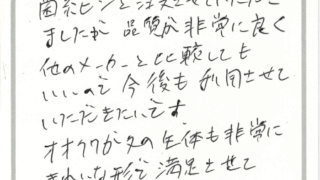 菌糸ビンを注文させていただき
ましたが 品質が非常に良く
他のメーカーと比較しても
いいので今後も利用させて
いただきたいです。
オオクワガタの生体も非常に
きれいな形で満足させて